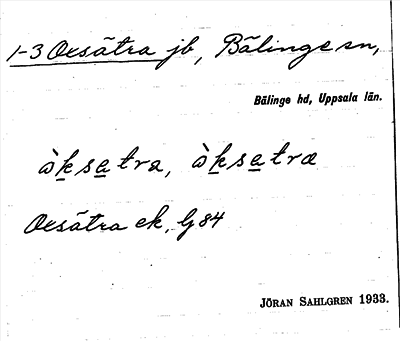 1-3 Oxsätra jb, Bälinge sn,
Bälinge hd, Uppsala län.
òk̲sa̲tra, òk̲sa̲tra
Oxsätra ek. G 84
JÖRAN SAHLGREN 1933.